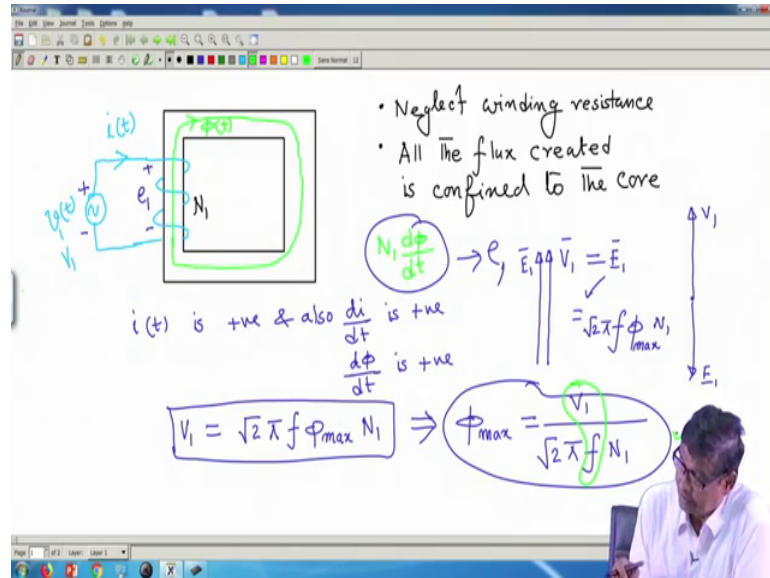 Journal
File Edit View Journal Tools Options Help
Sans Normal 12
i(t)
ϕ(t)
+ +
v₁(t) e₁ N₁
- -
V₁
• Neglect winding resistance
• All the flux created
is confined to the core
N₁ dϕ/dt → e₁ Ē₁ V̄₁ = Ē₁
= √2 π f ϕmax N₁
V₁
E₁
i(t) is +ve & also di/dt is +ve
dϕ/dt is +ve
V₁ = √2 π f ϕmax N₁ ⇒ ϕmax = V₁ / √2 π f N₁
Page 1 of 2 Layer: Layer 1